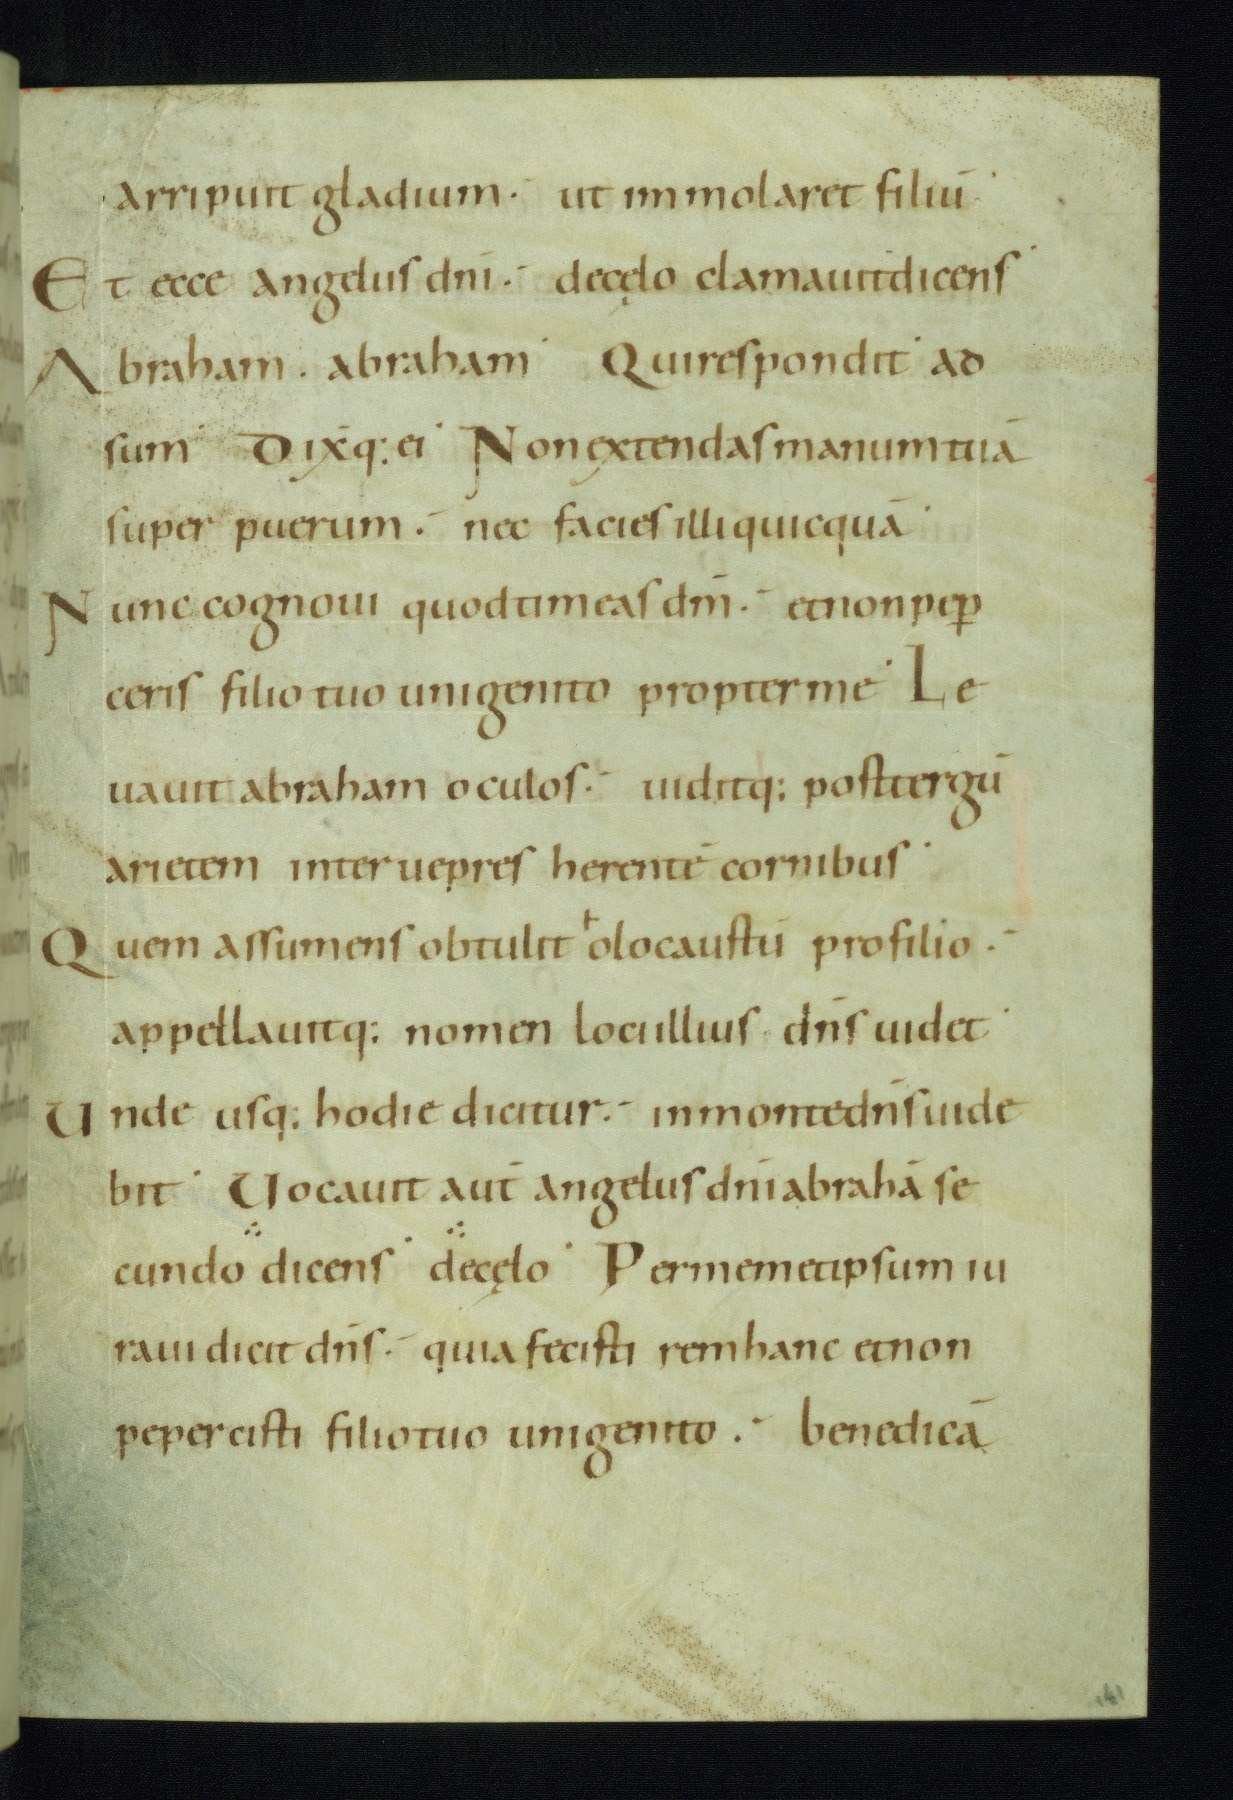 arripuit gladium·- ut immolaret filiū·
Et ecce angelus dn̄i·- decęlo clamauitdicens·
Abraham . abraham· Quirespondit· ad
sum· Dix̄q; ei· Nonextendasmanumtuā
super puerum·- nec facies illi quicquā·
Nunc cognoui quodtimeas dm̄·- etnonpep̱
ceris filio tuo unigenito propterme· Le
uauit abraham oculos·- uiditq; posttergū
arietem interuepres herentē cornibus·
Quem assumens obtulit ⱶolocaustū profilio·-
appellauitq; nomen loci illius· dn̄s uidet·
Unde usq; hodie dicitur·- inmontedn̄suide
bit· Uocauit aut̄ angelus dn̄i abrahā se
cundo dicens· decęlo· Permemetipsum iu
raui dicit dn̄s·- quia fecisti rem hanc etnon
pepercisti filiotuo unigenito·- benedicā
141